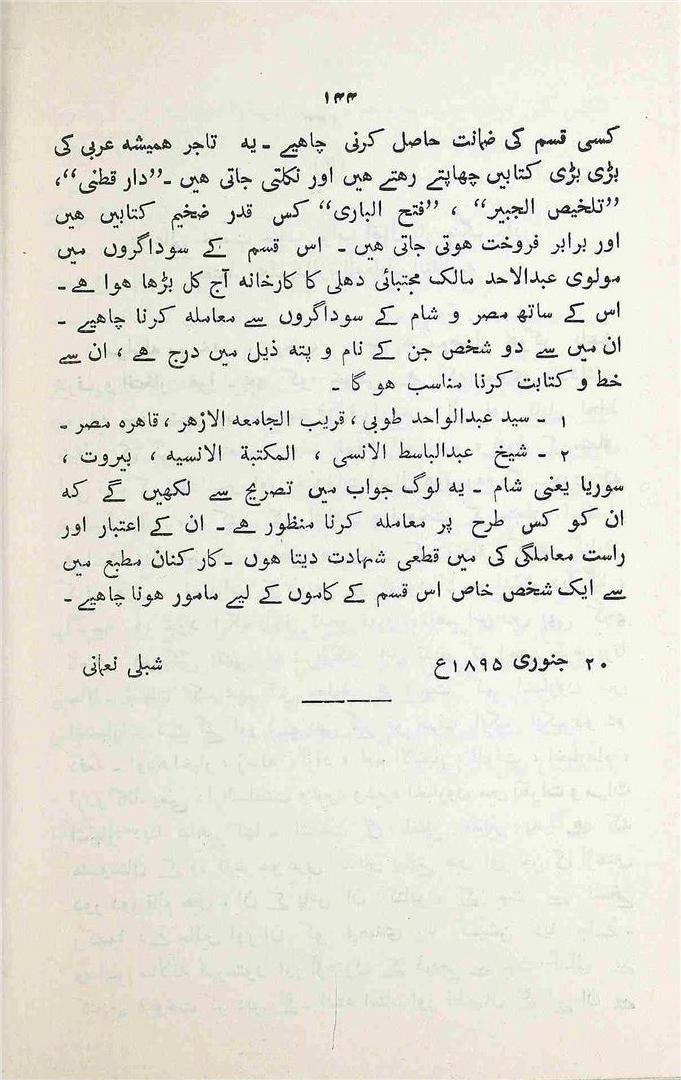 ۱۴۴
کسی قسم کی ضمانت حاصل کرنی چاہیے ۔ یہ تاجر ہمیشہ عربی کی
بڑی بڑی کتابیں چھاپتے رہتے ہیں اور نکلتی جاتی ہیں ۔ ”دار قطنی“ ،
”تلخیص الجبیر“ ، ”فتح الباری“ کس قدر ضخیم کتابیں ہیں
اور برابر فروخت ہوتی جاتی ہیں ۔ اس قسم کے سوداگروں میں
مولوی عبدالاحد مالک مجتبائی دہلی کا کارخانہ آج کل بڑھا ہوا ہے ۔
اس کے ساتھ مصر و شام کے سوداگروں سے معاملہ کرنا چاہیے ۔
ان میں سے دو شخص جن کے نام و پتہ ذیل میں درج ہے ، ان سے
خط و کتابت کرنا مناسب ہو گا ۔
۱ ۔ سید عبدالواحد طوبی ، قریب الجامعہ الازھر ، قاہرہ مصر ۔
۲ ۔ شیخ عبدالباسط الانسی ، المکتبة الانسیہ ، بیروت ،
سوریا یعنی شام ۔ یہ لوگ جواب میں تصریح سے لکھیں گے کہ
ان کو کس طرح پر معاملہ کرنا منظور ہے ۔ ان کے اعتبار اور
راست معاملگی کی میں قطعی شہادت دیتا ہوں ۔ کارکنان مطبع میں
سے ایک شخص خاص اس قسم کے کاموں کے لیے مامور ہونا چاہیے ۔
۲۰ جنوری ۱۸۹۵ع شبلی نعمانی